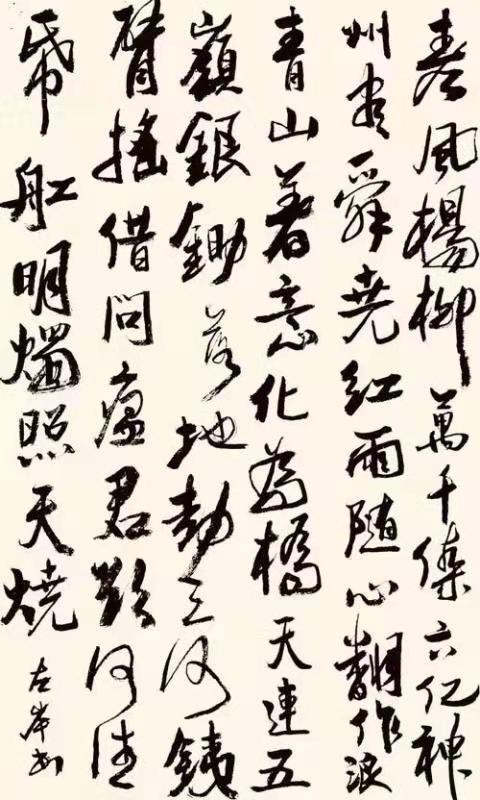 春風楊柳萬千條六亿神
州尽舜堯紅雨随心翻作浪
青山著意化為橋天連五
嶺銀鋤落地動三河銕
臂搖借問瘟君欲何往
帋舡明燭照天燒
左岸书